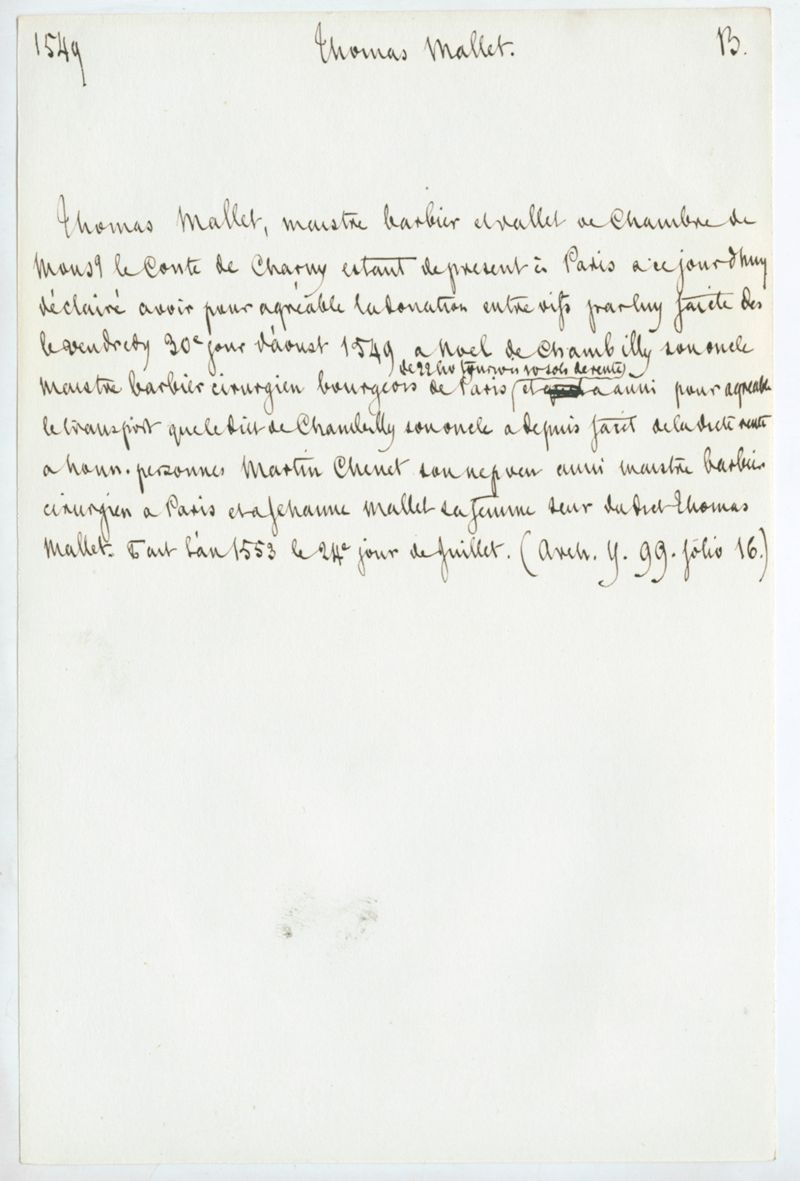 1549 Thomas Mallet. B.
Thomas Mallet, maistre barbier et vallet de Chambre de
Monsr le Conte de Charny estant de present à Paris a ce jourd'huy
déclairé avoir pour agréable la donation entre vifs par luy faicte des
le vendredy 30e jour d'aoust 1549 a Noel de Chambilly son oncle
de 22 liv tournois 10 sols de rente
maistre barbier cirurgien bourgeois de Paris et a aussi pour agreable
le transport que le dict de Chambilly son oncle a depuis faict de la dicte rente
a honn. personnes Martin Chenet son nepveu aussi maistre barbier
cirurgien a Paris et a Jehanne Mallet sa femme seur du dict Thomas
Mallet. Fait l'an 1553 le 24e jour de Juillet. (Arch. Y. 99. folio 16.)